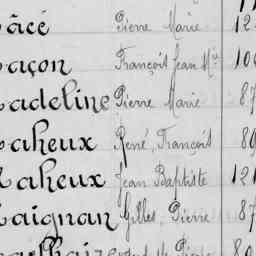 Lâcé Pierre Marie 12
Laçon François Jean M^ie 10
Ladeline Pierre Marie 87
Laheux René, François 80
Laheux Jean Baptiste 121
Laignan Gilles, Pierre 87